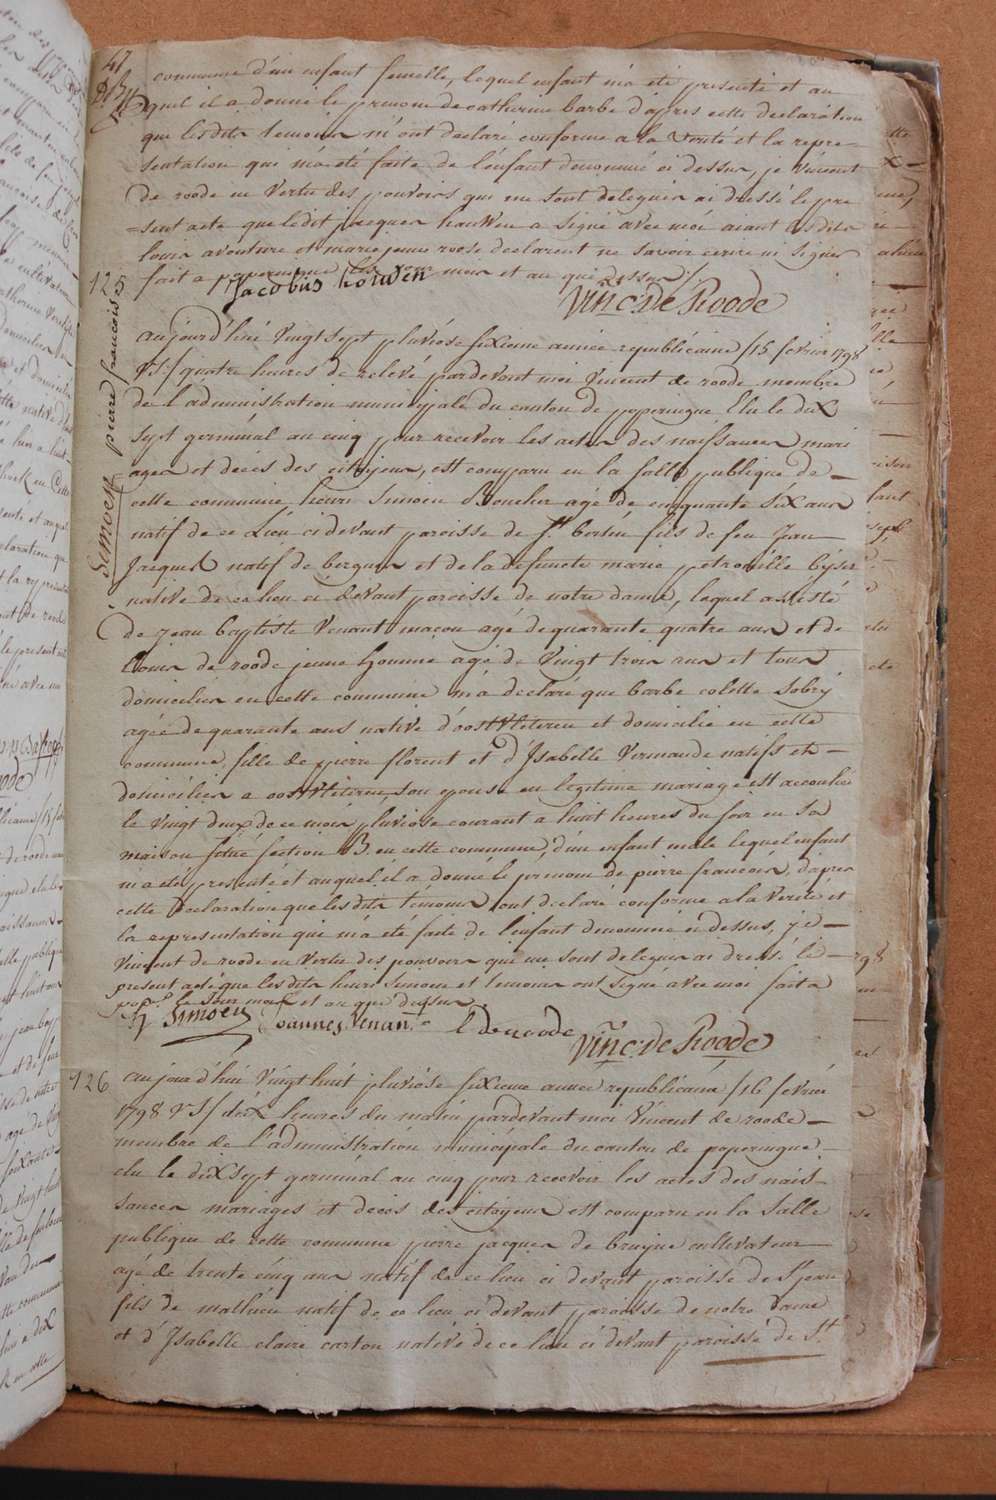 47
commune d'un enfant femelle, lequel enfant m'a été presenté et au
quel il a donné le prenom de catherine barbe d'apres cette declaration
que lesdits temoins m'ont declaré conforme a la verité et la repre-
sentation qui m'a été faite de l'enfant denommé ci dessus, je vincent
de roode en vertu des pouvoirs qui me sont delegués ai dressé le pre
sent acte que ledit jacques hauwen a signé avec moi aiant lesdits
louis aventure et marie jenne roose declarent ne savoir ecrire ni signer
fait a poperingue les jour mois et an que dessus /
Jacobus houwen Vinc. De Roode
125
Simoen pierre francois
aujourd'hui vingt sept pluviose sixieme année republicaine /15 fevrier 1798
V.S/ quatre heures de relevé pardevant moi Vincent de roode membre
de l'administration municipale du canton de poperingue Elu le dix
sept germinal an cinq pour recevoir les actes des naissances mari
ages et décès des citoyens, est comparu en la salle publique de
cette commune, henri Simoen Boucher agé de cinquante six ans
natif de ce Lieu ci devant paroisse de St. bertin fils de feu Jean
Jacques natif de bergues et de la defuncte marie petronille
native de ce lieu ci devant paroisse de notre dame, lequel assisté
de jean baptiste Venant macon agé de quarante quatre ans et de
louis de roode jeune homme agé de vingt trois ans et tous
domicilies en cette commune m'a declaré que barbe colette Sobry
agée de quarante ans native d'oostvleteren et domicilie en cette
commune, fille de pierre florent et d'Isabelle Vermande natifs et
domiciliés a oostvleteren, son epouse en legitime mariage est accouchée
le vingt deux de ce mois pluviose courant a huit heures du soir en sa
maison située section B. en cette commune, d'un enfant male lequel enfant
m'a été presenté et auquel il a donné le prenom de pierre francois, d'apres
cette declaration que lesdits temoins ont declaré conforme a la verité et
la representation qui m'a été faite de l'enfant denommé ci dessus, je
Vincent de roode en vertu des pouvoirs qui me sont delegués ai dressé le
present acte que lesdits henri Simoen et temoins ont signé avec moi fait a
pop.e le jour mois et an que dessus.
Simoen Joannes Venan L Deroode Vinc. De Roode
126
aujourd'hui vingt huit pluviose sixieme année republicaine /16 fevrier
1798 V.S/ dix heures du matin pardevant moi Vincent de roode
membre de l'administration municipale du canton de poperingue
elu le dix sept germinal an cinq pour recevoir les actes des nais-
sances mariages et décès des citoyens est comparu en la Salle
publique de cette commune pierre jacques de bruyne cultivateur
agé de trente cinq ans natif de ce lieu ci devant paroisse de St jean
fils de mathieu natif de ce lieu ci devant paroisse de notre dame
et d'Isabelle claire carton native de ce lieu ci devant paroisse de St